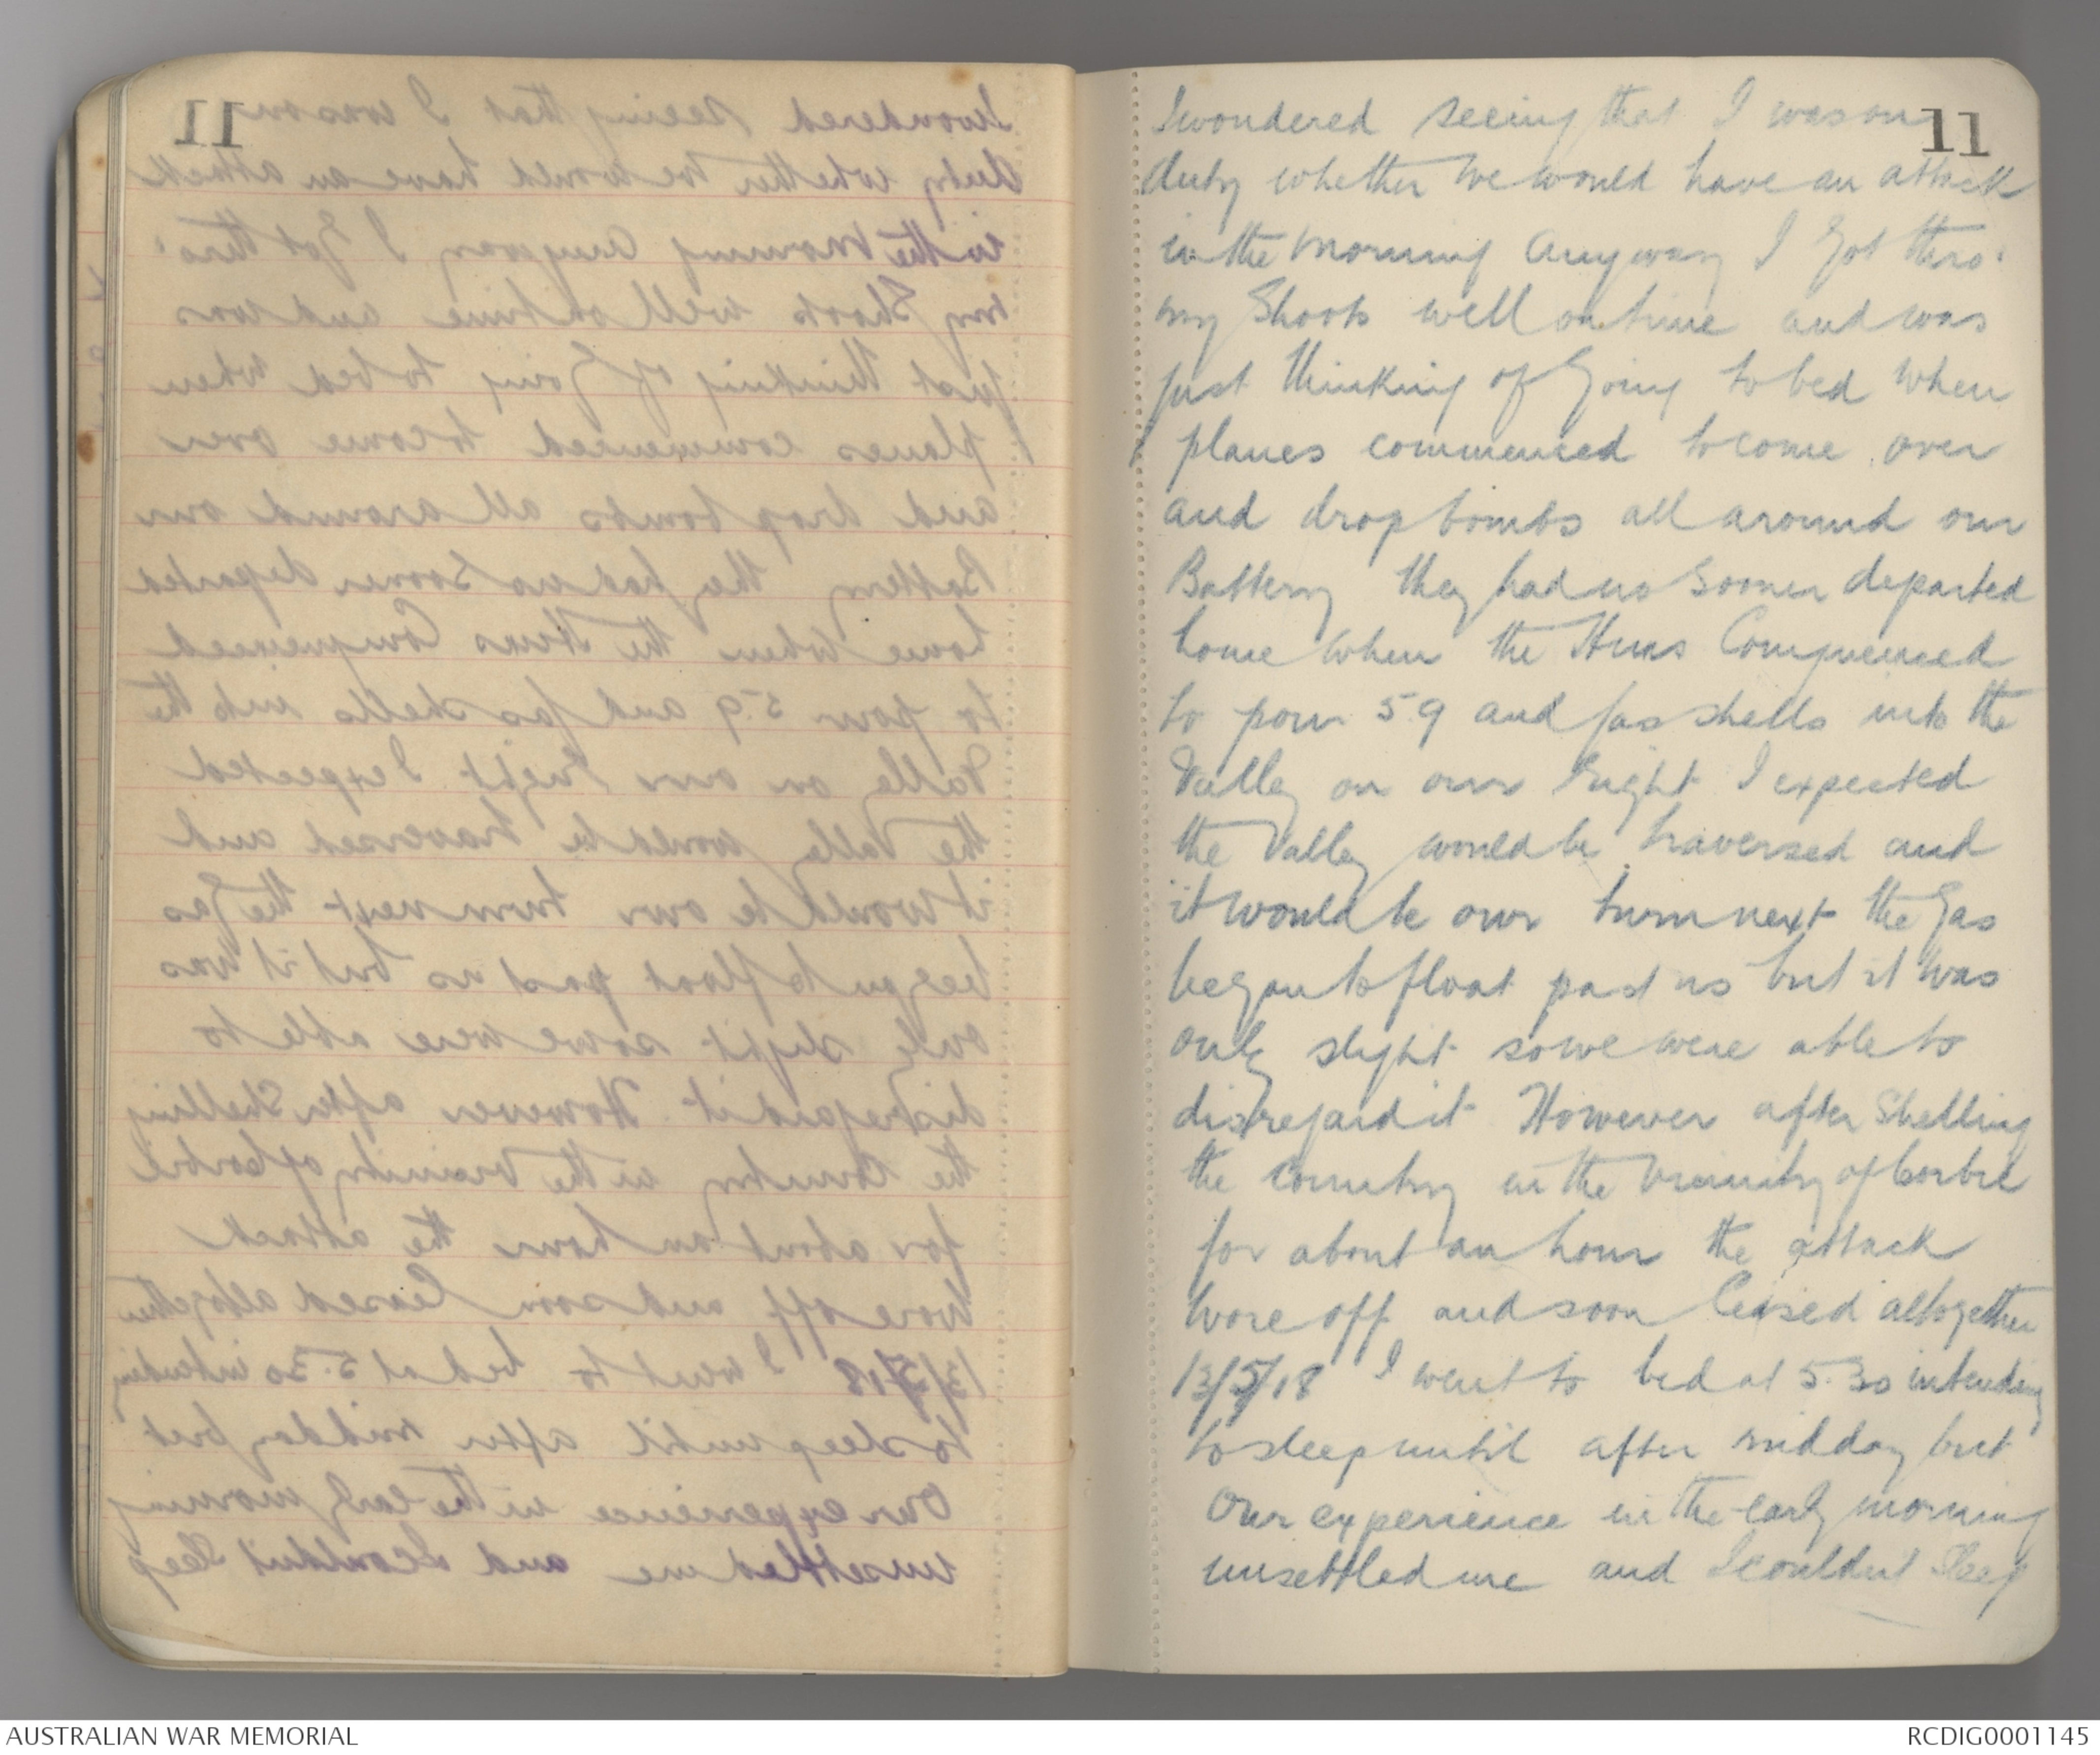 11
I wondered seeing that I was on
duty whether we would have an attack
in the morning Anyway I got thro'
my Shoots well on time and was
just thinking of going to bed when
planes commenced to come over
and drop bombs all around our
Battery they had no sooner departed
home when the Huns Commenced
to pour 5.9 and gas shells into the
Valley on our right I expected
the Valley would be traversed and
it would be our turn next the gas
began to float past us but it was
only slight so we were able to
disregard it However after Shelling
the Country in the vicinity of Corbie
for about an hour the attack
wore off and soon Ceased altogether
13/5/18 I went to bed at 5.30 intending
to sleep until after midday but
Our experience in the early morning
unsettled me and I couldn't sleep
AUSTRALIAN WAR MEMORIAL
RCDIG0001145